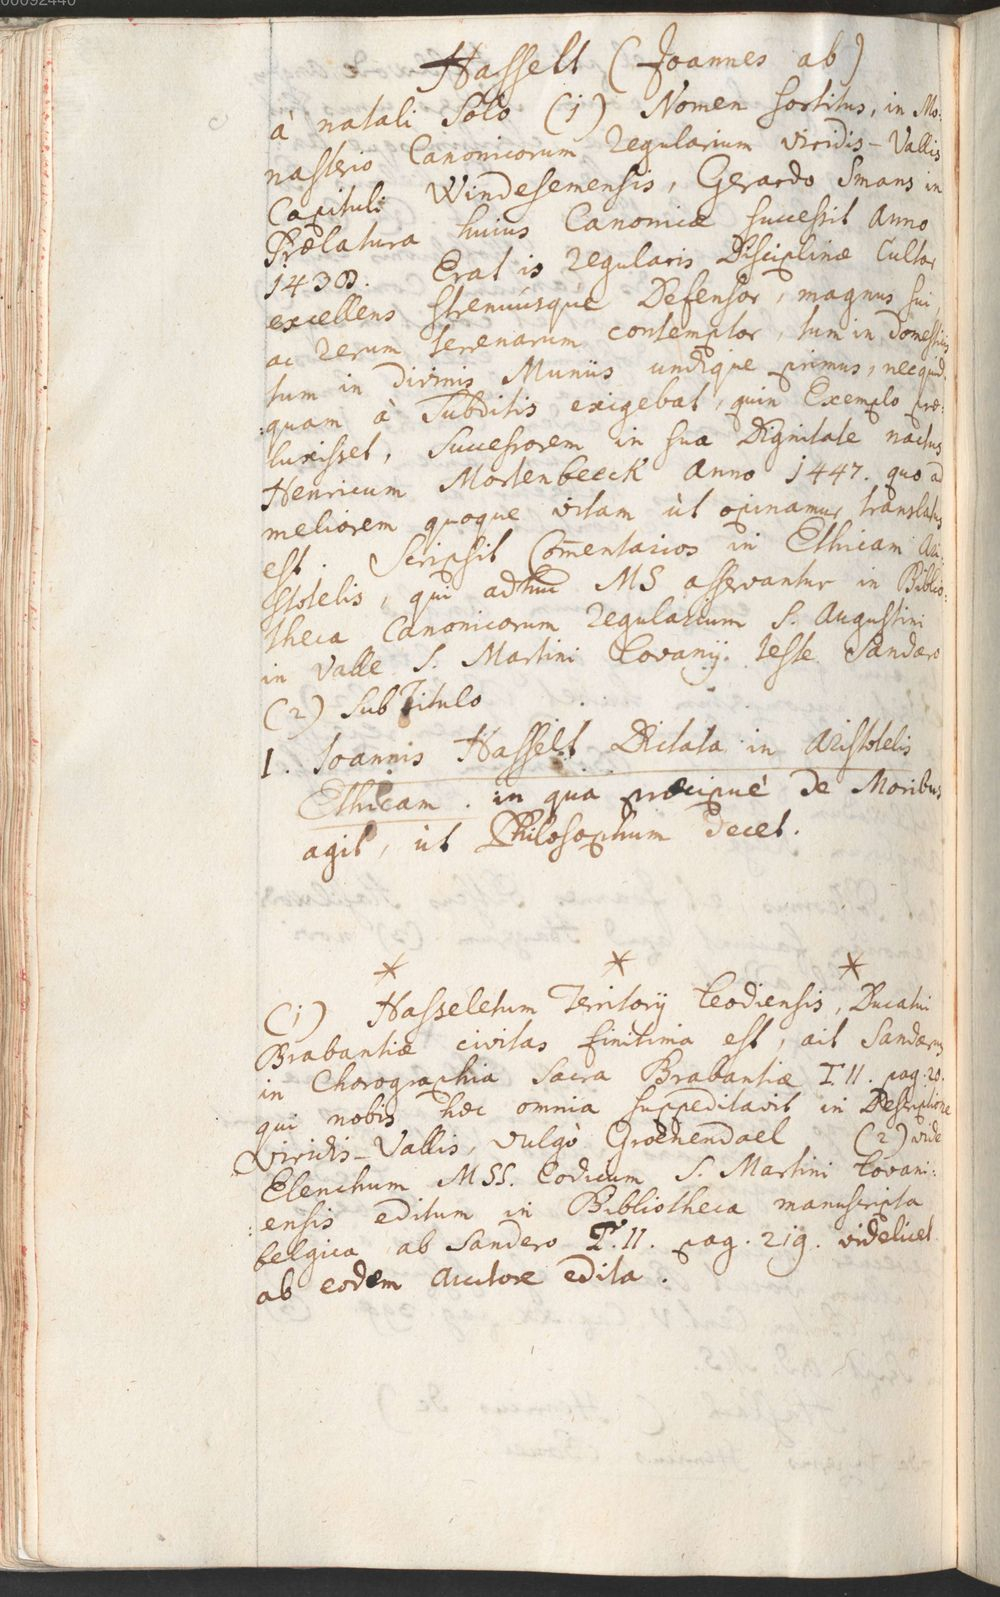 00092440
Hasselt (Joannes ab)
à natali Solo (1) Nomen sortitus, in Mo:
nasterio Canonicorum Regularium Viridis-Vallis
Capituli Windesemensis, Gerardo Smans in
Prælatura huius Canonicæ successit Anno
1438. Erat is regularis Disciplinæ Cultor
excellens strenuúsque Defensor, magnus sui,
ac rerum terrenarum contemptor, tum in domesticis
tum in divinis Muniis undique primus, nec quid:
:quam à Subditis exigebat, quin Exemplo præ:
luxisset, Successorem in sua Dignitate nactus
Henricum Mortenbeeck Anno 1447. quo ad
meliorem quoque vitam ùt opinamur, translatus
est. Scripsit Com̄entarios in Ethicam Ari:
stotelis, qui adhuc MS asservantur in Biblio:
theca Canonicorum Regularium S. Augustini
in Valle S. Martini Lovanij. teste Sandero
(2) sub Titulo
1. Ioannis Hasselt Dictata in Aristotelis
Ethicam. in qua præcipuè de Moribus
agit, ùt Philosophum decet.
* * *
(1) Hasseletum Territorij Leodiensis, Ducatui
Brabantiæ civitas finitima est, ait Sanderus
in Chorographia Sacra Brabantiæ T.II. pag. 20.
qui nobis hæc omnia suppeditavit in Descriptione
Viridis-Vallis, vulgò Groenendael (2) vide
Elenchum MSS. Codicum S. Martini Lovani:
:ensis editum in Bibliotheca manuscripta
belgica ab Sandero T.II. pag. 219. videlicet
ab eodem Auctore edita.